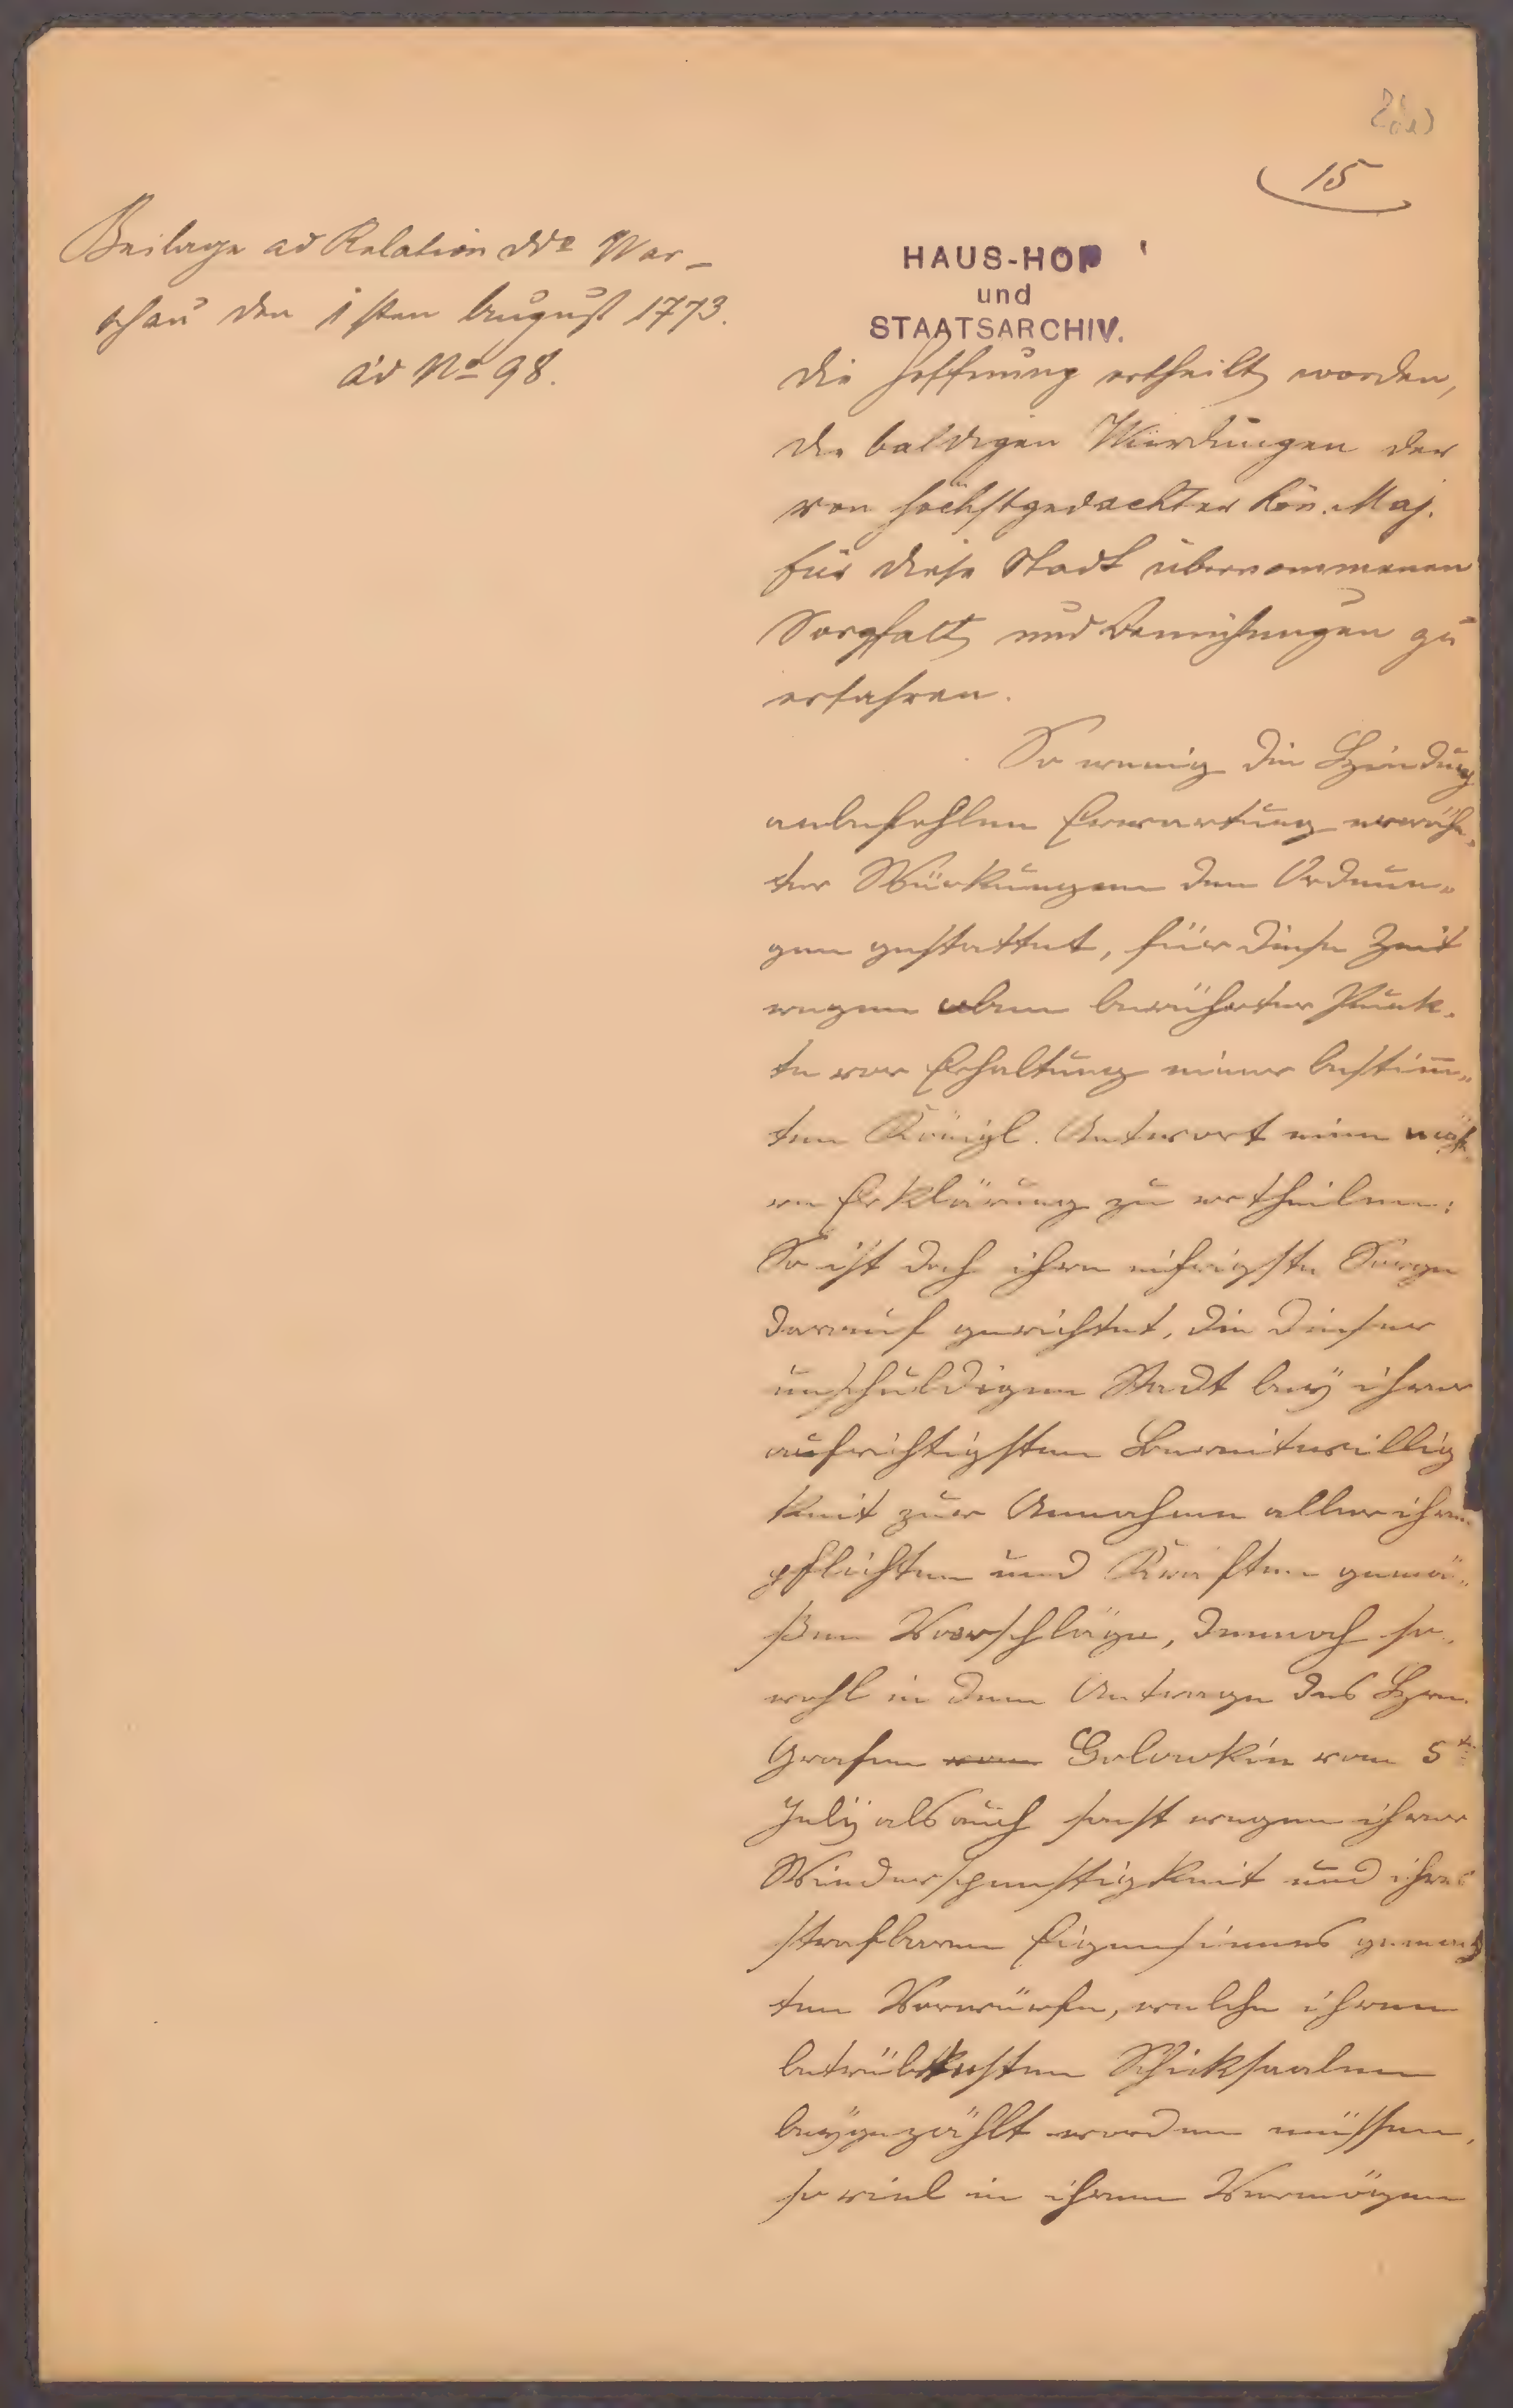 15
Beilage ad Relation dd° War-
schau den 1sten August 1773.
ad No 98.
HAUS-HOF
und
STAATSARCHIV.
die Hoffnung ertheilt worden,
die baldigen Würckungen der
von höchstgedachter Kön. Maj.
für diese Stadt übernommenen
Sorgfalt und Bemühungen zu
erfahren.
So wenig die
anbefohlene Erwartung erwäh„
ter Würkungen den Ordnun„
gen gestattet, für diese Zeit
wegen eben berührter Punk„
te vor Erhaltung einer bestim̅„
ten Königl. Antwort eine näh„
re Erklärung zu ertheilen:
So ist doch ihre eifrigste Sorge
darauf gerichtet, die dieser
unschuldigen Stadt bey ihrer
aufrichtigsten Bereitwillig
keit zur Annahme aller ihren
pflichten und Kräften gemä„
ßen Vorschläge, dennoch so„
wohl in dem Antrage des Hrn.
Grafen von Golowkin vom 5ten
July als auch sonst wegen ihrer
Wiederspenstigkeit und ihres
strafbaren Eigensinnes gemach
ten Vorwürfe, welche ihren
betrübtesten Schicksaalen
beygezählt werden müssen,
so viel in ihrem Vermögen